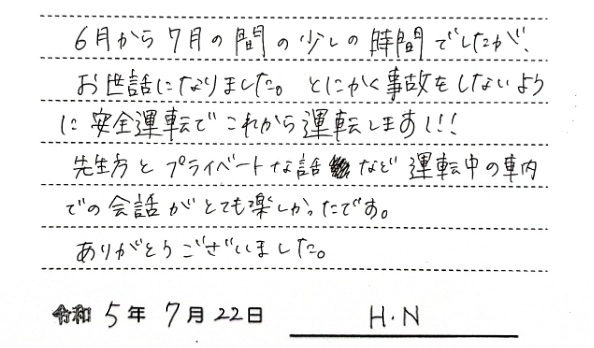 6月から7月の間の少しの時間でしたが、
お世話になりました。とにかく事故をしないよう
に安全運転でこれから運転します!!!
先生方とプライベートな話など運転中の車内
での会話がとても楽しかったです。
ありがとうございました。
令和5年7月22日 H.N